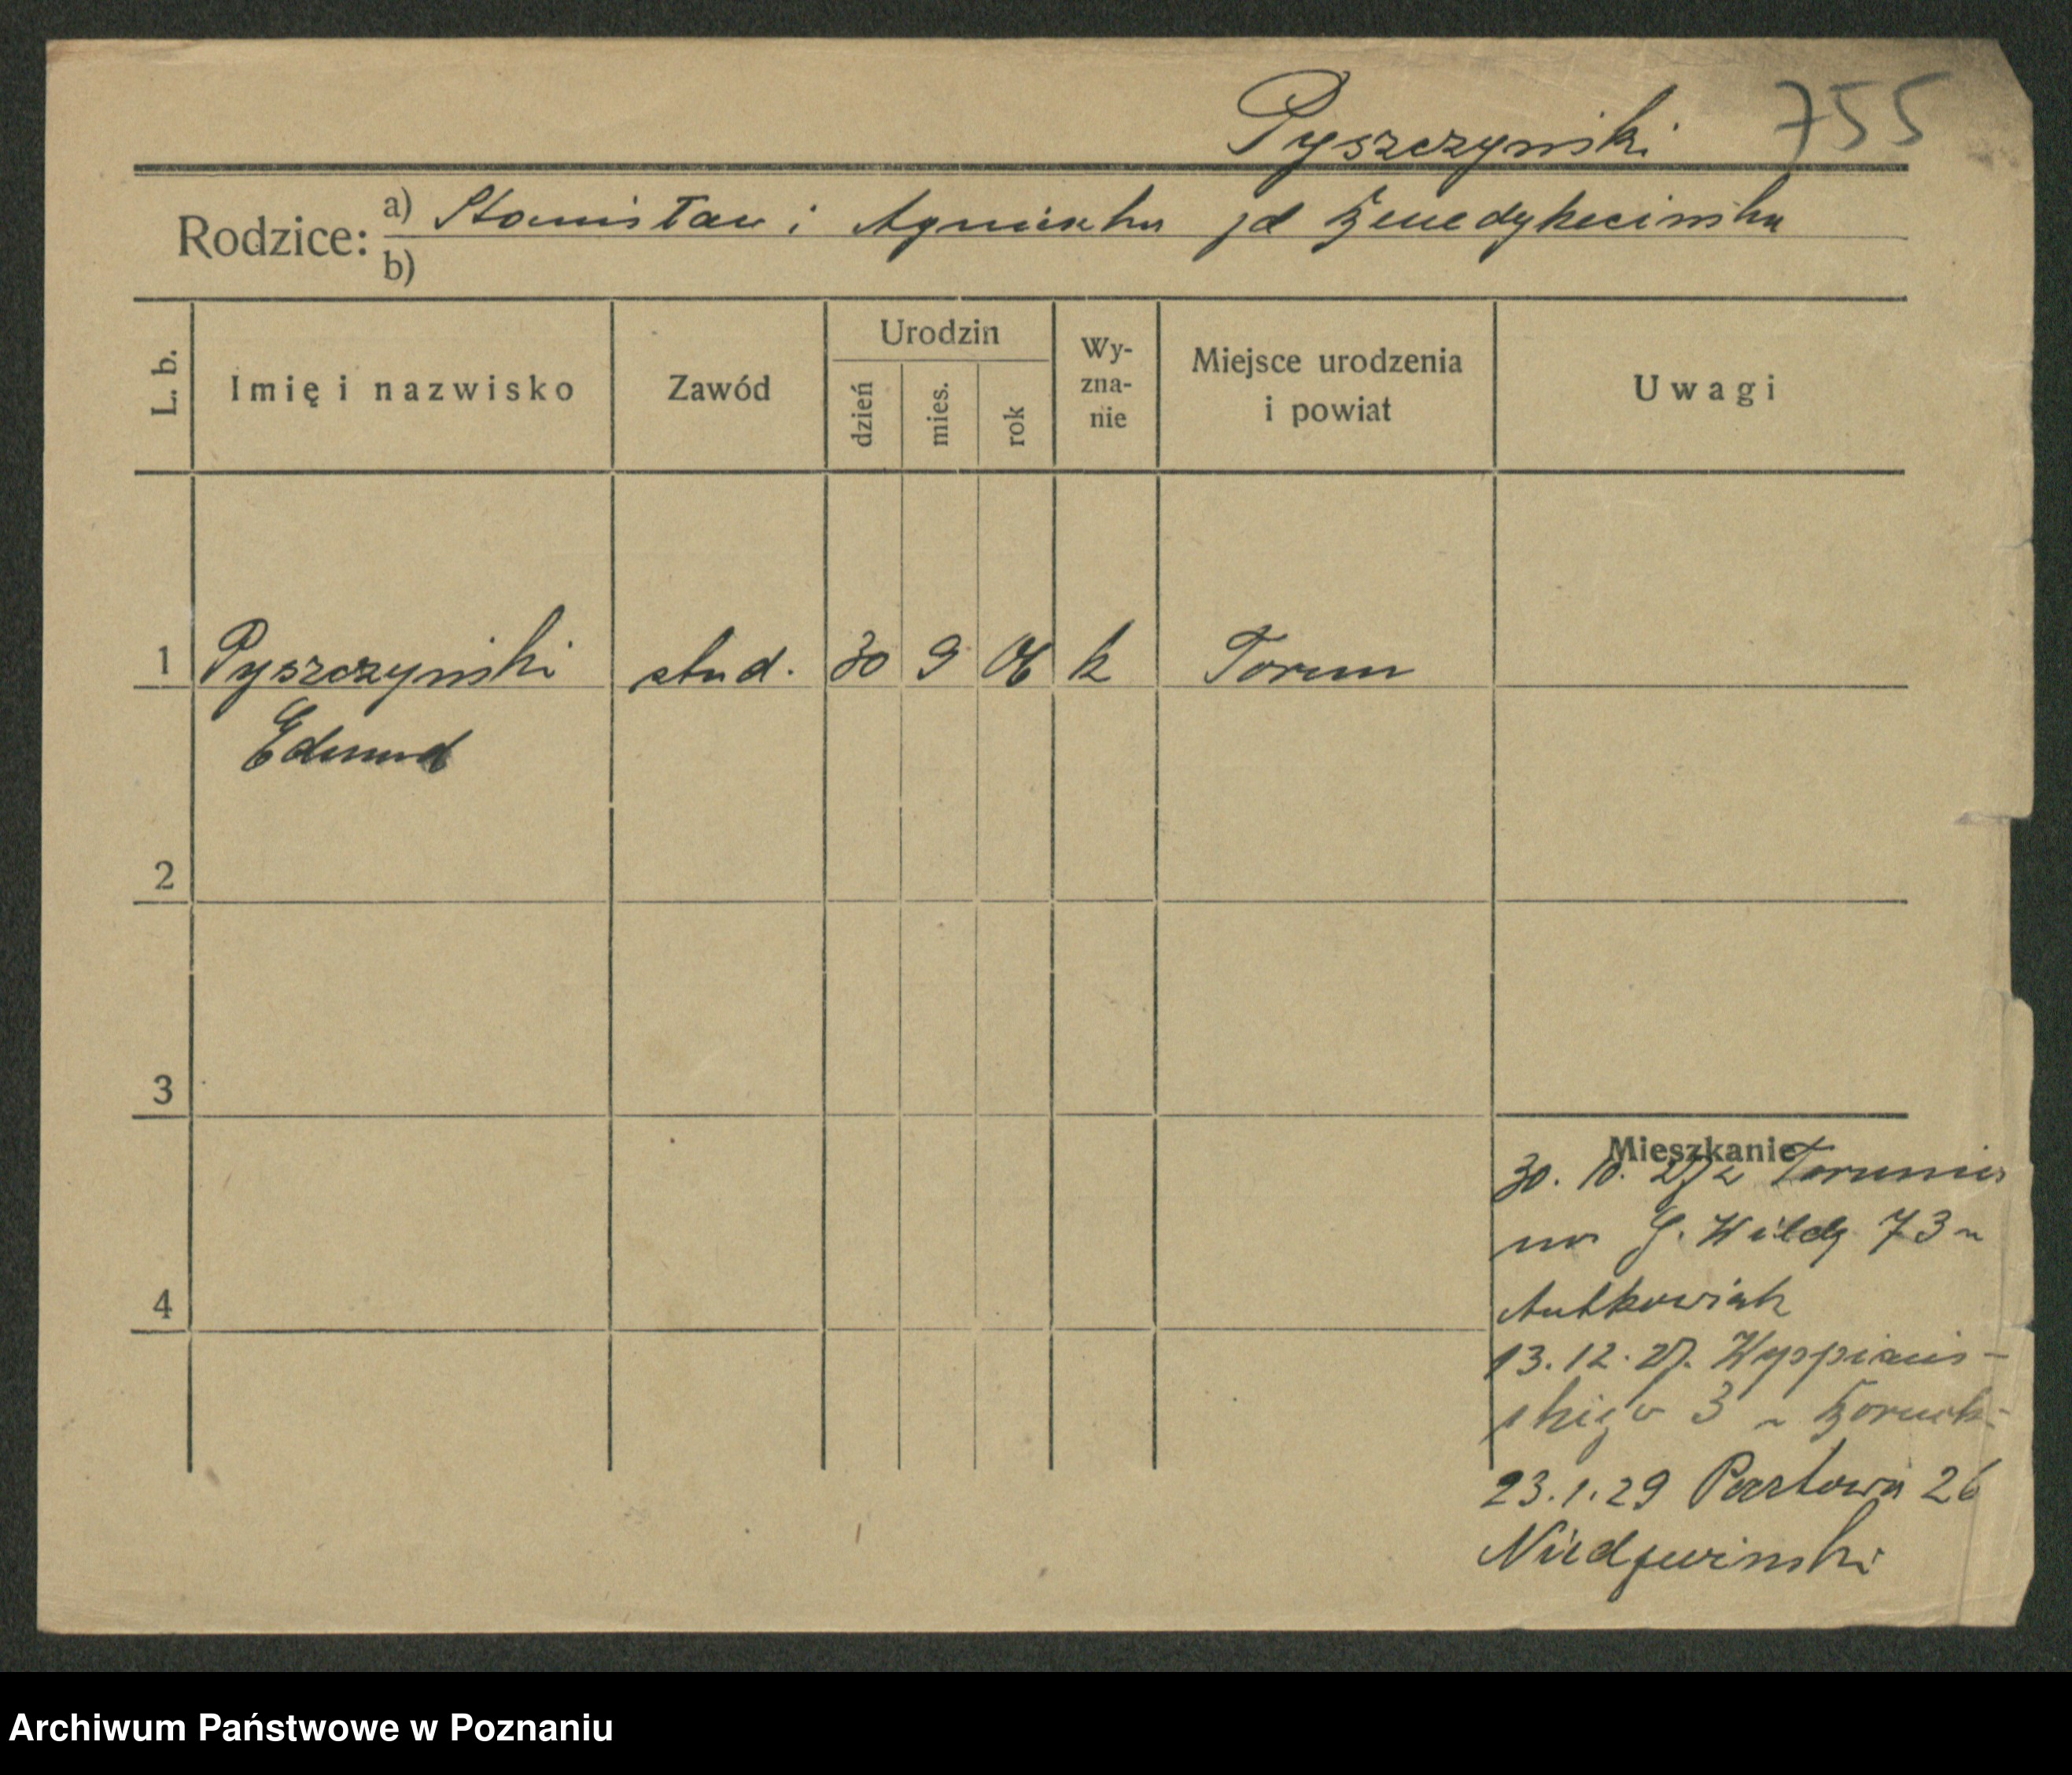 Pyszczynski 755
Rodzice: a) Stanisław i Agnieszka jd
b)
L. b. Imię i nazwisko Zawód Urodzin dzień mies. rok Wy-zna-nie Miejsce urodzenia i powiat Uwagi
1 Pyszczynski stud. 30 9 06 k Torun
Edmund
2
3
Mieszkanie
30. 10. 27 z Torunia
na G. Wildę 73
4 Antkowiak
13. 12. 27. Wyspiańs-
skiego 3
23. 1. 29 26
Archiwum Państwowe w Poznaniu